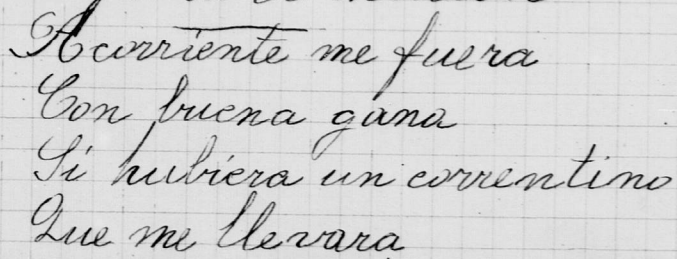 Acorriente me fuera
Con buena gana
Si hubiera un correntino
Que me llevara